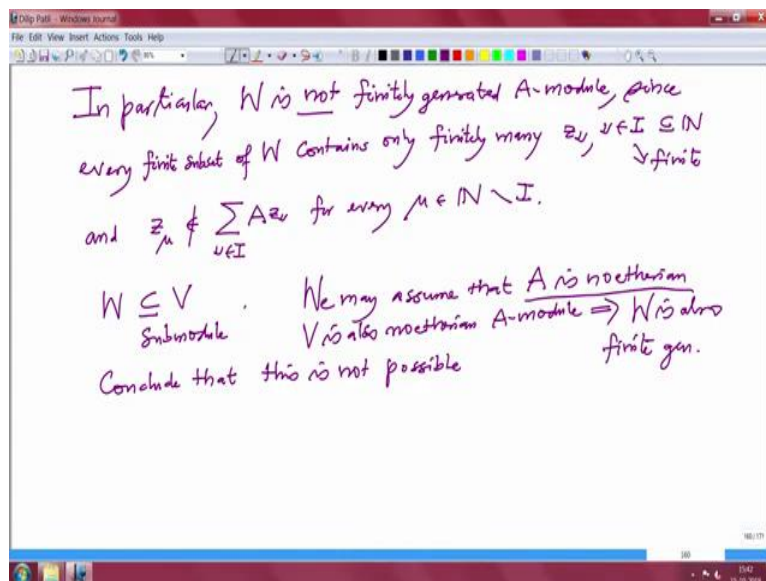 Dilip Patil - Windows Journal
File Edit View Insert Actions Tools Help
In particular, W is not finitely generated A-module, since
every finite subset of W contains only finitely many z_ν, ν∈I ⊆ ℕ
finite
and z_μ ∉ ∑_{ν∈I} Az_ν for every μ ∈ ℕ \ I.
W ⊆ V . We may assume that A is noetherian
Submodule V is also noetherian A-module ⇒ W is also
finite gen.
Conclude that this is not possible
160/171
160
15:42